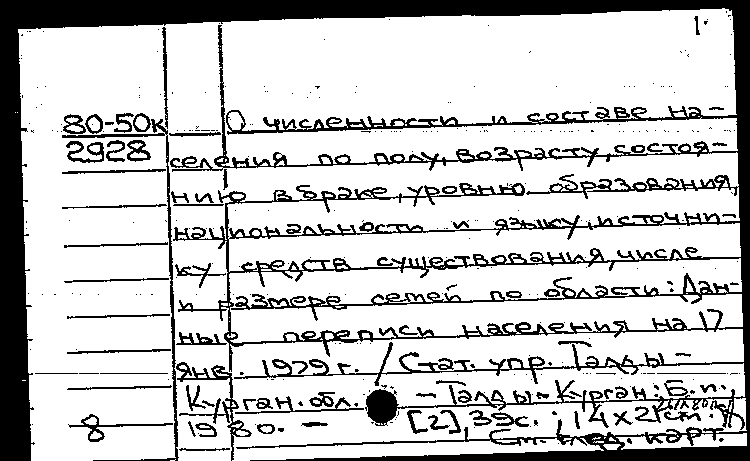 1.
80-50к О численности и составе на-
2928 селения по полу, возрасту, состоя-
нию в браке, уровню образования,
национальности и языку, источни-
ку средств существования, числе
и размере семей по области: Дан-
ные переписи населения на 17
янв. 1979 г. / Стат. упр. Талды-
Курган. обл. – Талды-Курган: Б.и.,
8 1980. – [2], 39с.; 14х21 см.
См. след. карт.